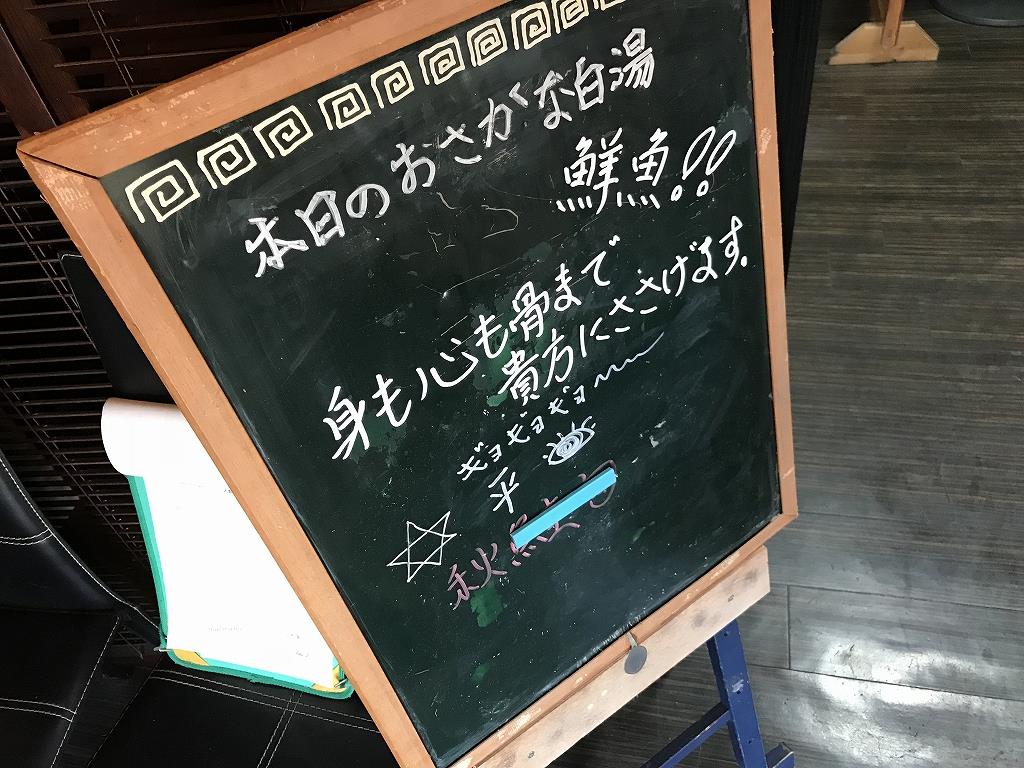 本日のおさかな白湯
鮮魚!!
身も心も骨まで
貴方にささげます。
ギョギョギョ〜
平
秋